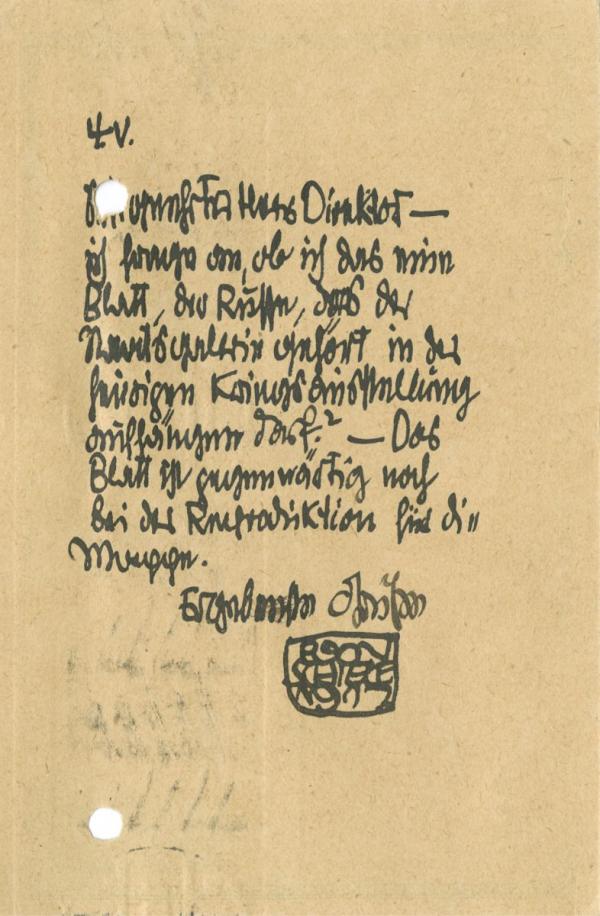 4. V.
Sehr geehrter Herr Direktor —
ich frage an, ob ich das eine
Blatt, der Russe, das der
Staatsgalerie gehört in der
heurigen Kriegsausstellung
aufhängen darf? — Das
Blatt ist gegenwärtig noch
bei der Reproduktion für die
Mappe.
Ergebenste Grüße
EGON
SCHIELE
1917